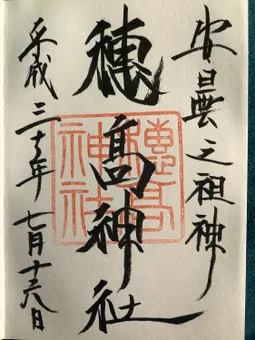 安曇之祖神
穂高神社
穂高神社
平成三十年七月十六日